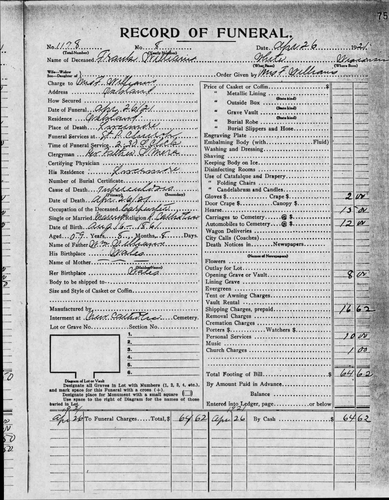 75
RECORD OF FUNERAL.
No. 1178 No. 8 Date, Apr 26 1921
(Total Number) (Yearly Number)
Name of Deceased Frank Williams White
(What Race) (Where Born)
Charge to Mrs F. Williams Order Given by Mrs F. Williams
Address Oakland
How Secured
Date of Funeral Apr 26/21
Residence Oakland
Place of Death
Funeral Services at Church
Time of Funeral Service 2.30 O'Clock
Clergyman
Certifying Physician
His Residence
Number of Burial Certificate
Cause of Death Tuberculosis
Date of Death Apr 24/21
Occupation of the Deceased Carpenter
Single or Married Religion Catholic
Date of Birth Aug 16 - 1861
Aged 59 Years 8 Months 8 Days.
Name of Father Wm Williams
His Birthplace Wales
Name of Mother
Her Birthplace Wales
Body to be shipped to
Size and Style of Casket or Coffin
Manufactured by
Interment at Catholic Cemetery.
Lot or Grave No. Section No.
1
2
3
4
5
6
Diagram of Lot or Vault
Designate all Graves in Lot with Numbers (1, 2, 3, 4, etc.) and mark space for this Funeral with a cross (+).
Designate place for Monument with a small square
Use space to the right of Diagram for the names of those buried in Lot.
Price of Casket or Coffin
" Metallic Lining
(State kind)
" Outside Box
(State kind)
" Grave Vault
(State kind)
" Burial Robe
(State kind)
" Burial Slippers and Hose
Engraving Plate
Embalming Body (with Fluid)
Washing and Dressing
Shaving
Keeping Body on Ice
Disinfecting Rooms
Use of Catafalque and Drapery
" Folding Chairs
" Candelabrum and Candles
Gloves $ Crape $ 2 00
Door Crape $ Canopy $
Hearse 15 00
Carriages to Cemetery @ $
Automobiles to Cemetery @ $ 12 00
Wagon Deliveries
City Calls (Coaches)
Death Notices in Newspapers
Flowers
Outlay for Lot
Opening Grave or Vault 8 00
Lining Grave
Evergreen
Tent or Awning Charges
Vault Rental
Shipping Charges, prepaid 16 62
Removal Charges
Cremation Charges
Porters $ Watchers $
Personal Services 10 00
Music
Church Charges 1 00
Total Footing of Bill 64 62
By Amount Paid in Advance
Balance
Entered into Ledger, page or below.
1921 1921
Apr 26 To Funeral Charges Total, $ 64 62 Apr 26 By Cash $ 64 62